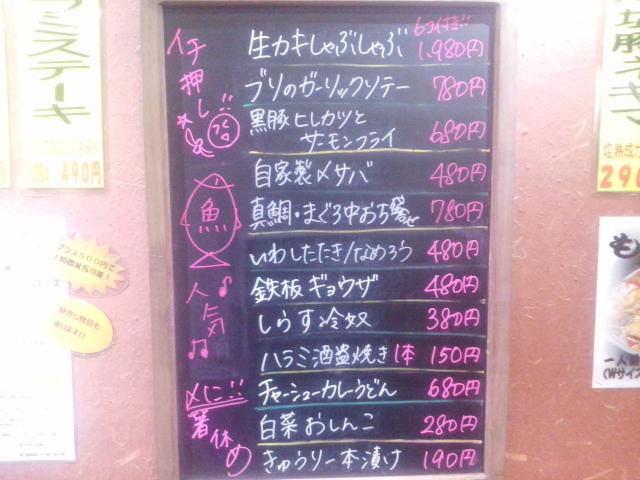 イチ押し!!
6コ付き!!
生カキしゃぶしゃぶ 1,980円
ブリのガーリックソテー 780円
黒豚ヒレカツと
サーモンフライ 680円
魚
自家製〆サバ 480円
真鯛・まぐろ中おち寄せ 780円
いわしたたき/なめろう 480円
人気
鉄板ギョウザ 480円
しらす冷奴 380円
ハラミ酒盗焼き 1本 150円
〆に!!
チャーシューカレーうどん 680円
箸休め
白菜おしんこ 280円
きゅうり一本漬け 190円
ステーキ
490円
プラス500円で
1時間延長可能!
コース
塩熟成
290
も
一人
(Wサイズ